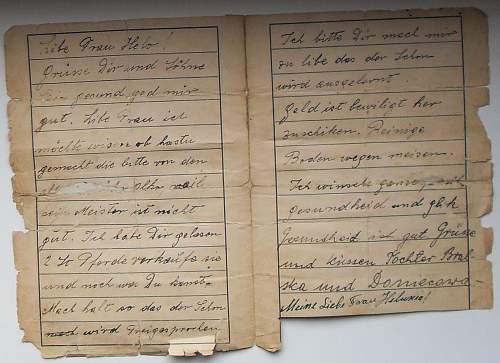 Libe Frau Helo!
Grüsse Dir und Söhne
gesund god mir
gut. Libe Frau ich
möchte wissen ob hastu
gemacht die bitte von den
Otto weill
sein Meister ist nicht
gut. Ich habe Dir gelasen
2 St Pferde vorkaufe sie
und noch was Du kanst.
Mach halt so das der Sohn
noch wird Freigesprochen
Ich bitte Dir mach mir
zu libe das der Sohn
wird ausgelernt.
geld ist bewiligt her
zuschiken. Reinige
Boden wegen meisen.
Ich winsche
gesundheid und glik
Gesundheid ist gut Grüsse
und küssen Tochter
ska und
Meine Liebe Frau